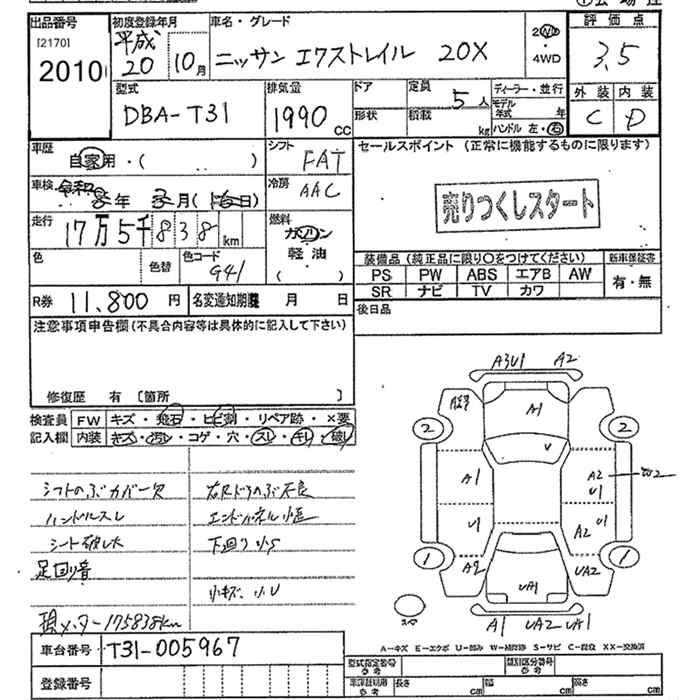 出品番号
[2170]
2010
初度登録年月
平成
20 10月
車名・グレード
ニッサン エクストレイル 20X
2WD
・
4WD
評価点
3.5
外装 内装
C D
型式
DBA-T31
排気量
1990 cc
ドア
形状
定員
5人
積載
kg
ディーラー・並行
モデル年式 年
ハンドル 左・右
車歴
自家用・( )
シフト
FAT
車検
令和 8年 3月
冷房
AAC
走行
17万5千838km
燃料
ガソリン
軽油
( )
色
色替
色コード
G41
R券 11,800円
名変通知期限 月 日
セールスポイント(正常に機能するものに限ります)
売りつくしスタート
装備品(純正品に限り〇をつけてください)
新車保証書
PS PW ABS エアB AW
SR ナビ TV カワ
有・無
後日品
注意事項申告欄(不具合内容等は具体的に記入して下さい)
修復歴 有 [箇所 ]
検査員
記入欄
FW キズ・飛石・ヒビ割・リペア跡・×要
内装 キズ・汚レ・コゲ・穴・スレ・キレ・破レ
シフトのぶカバー欠
ハンドルスレ
シート破レ大
足回り音
現メーター175838km
右Rドアのぶ不良
下回り小S
小キズ、小U
A3U1 A2
A1
2 2
V
A1
A2
U1
U1
A2 U1
1 1
A2
UA2
UA1
A1 UA2 UA1
A-キズ E-エクボ U-凹み W-補修跡 S-サビ C-腐食 XX-交換済
車台番号 T31-005967
登録番号
型式指定番号
参考
類別区分番号
参考
車庫証明用
参考
長さ cm
幅 cm
高さ cm